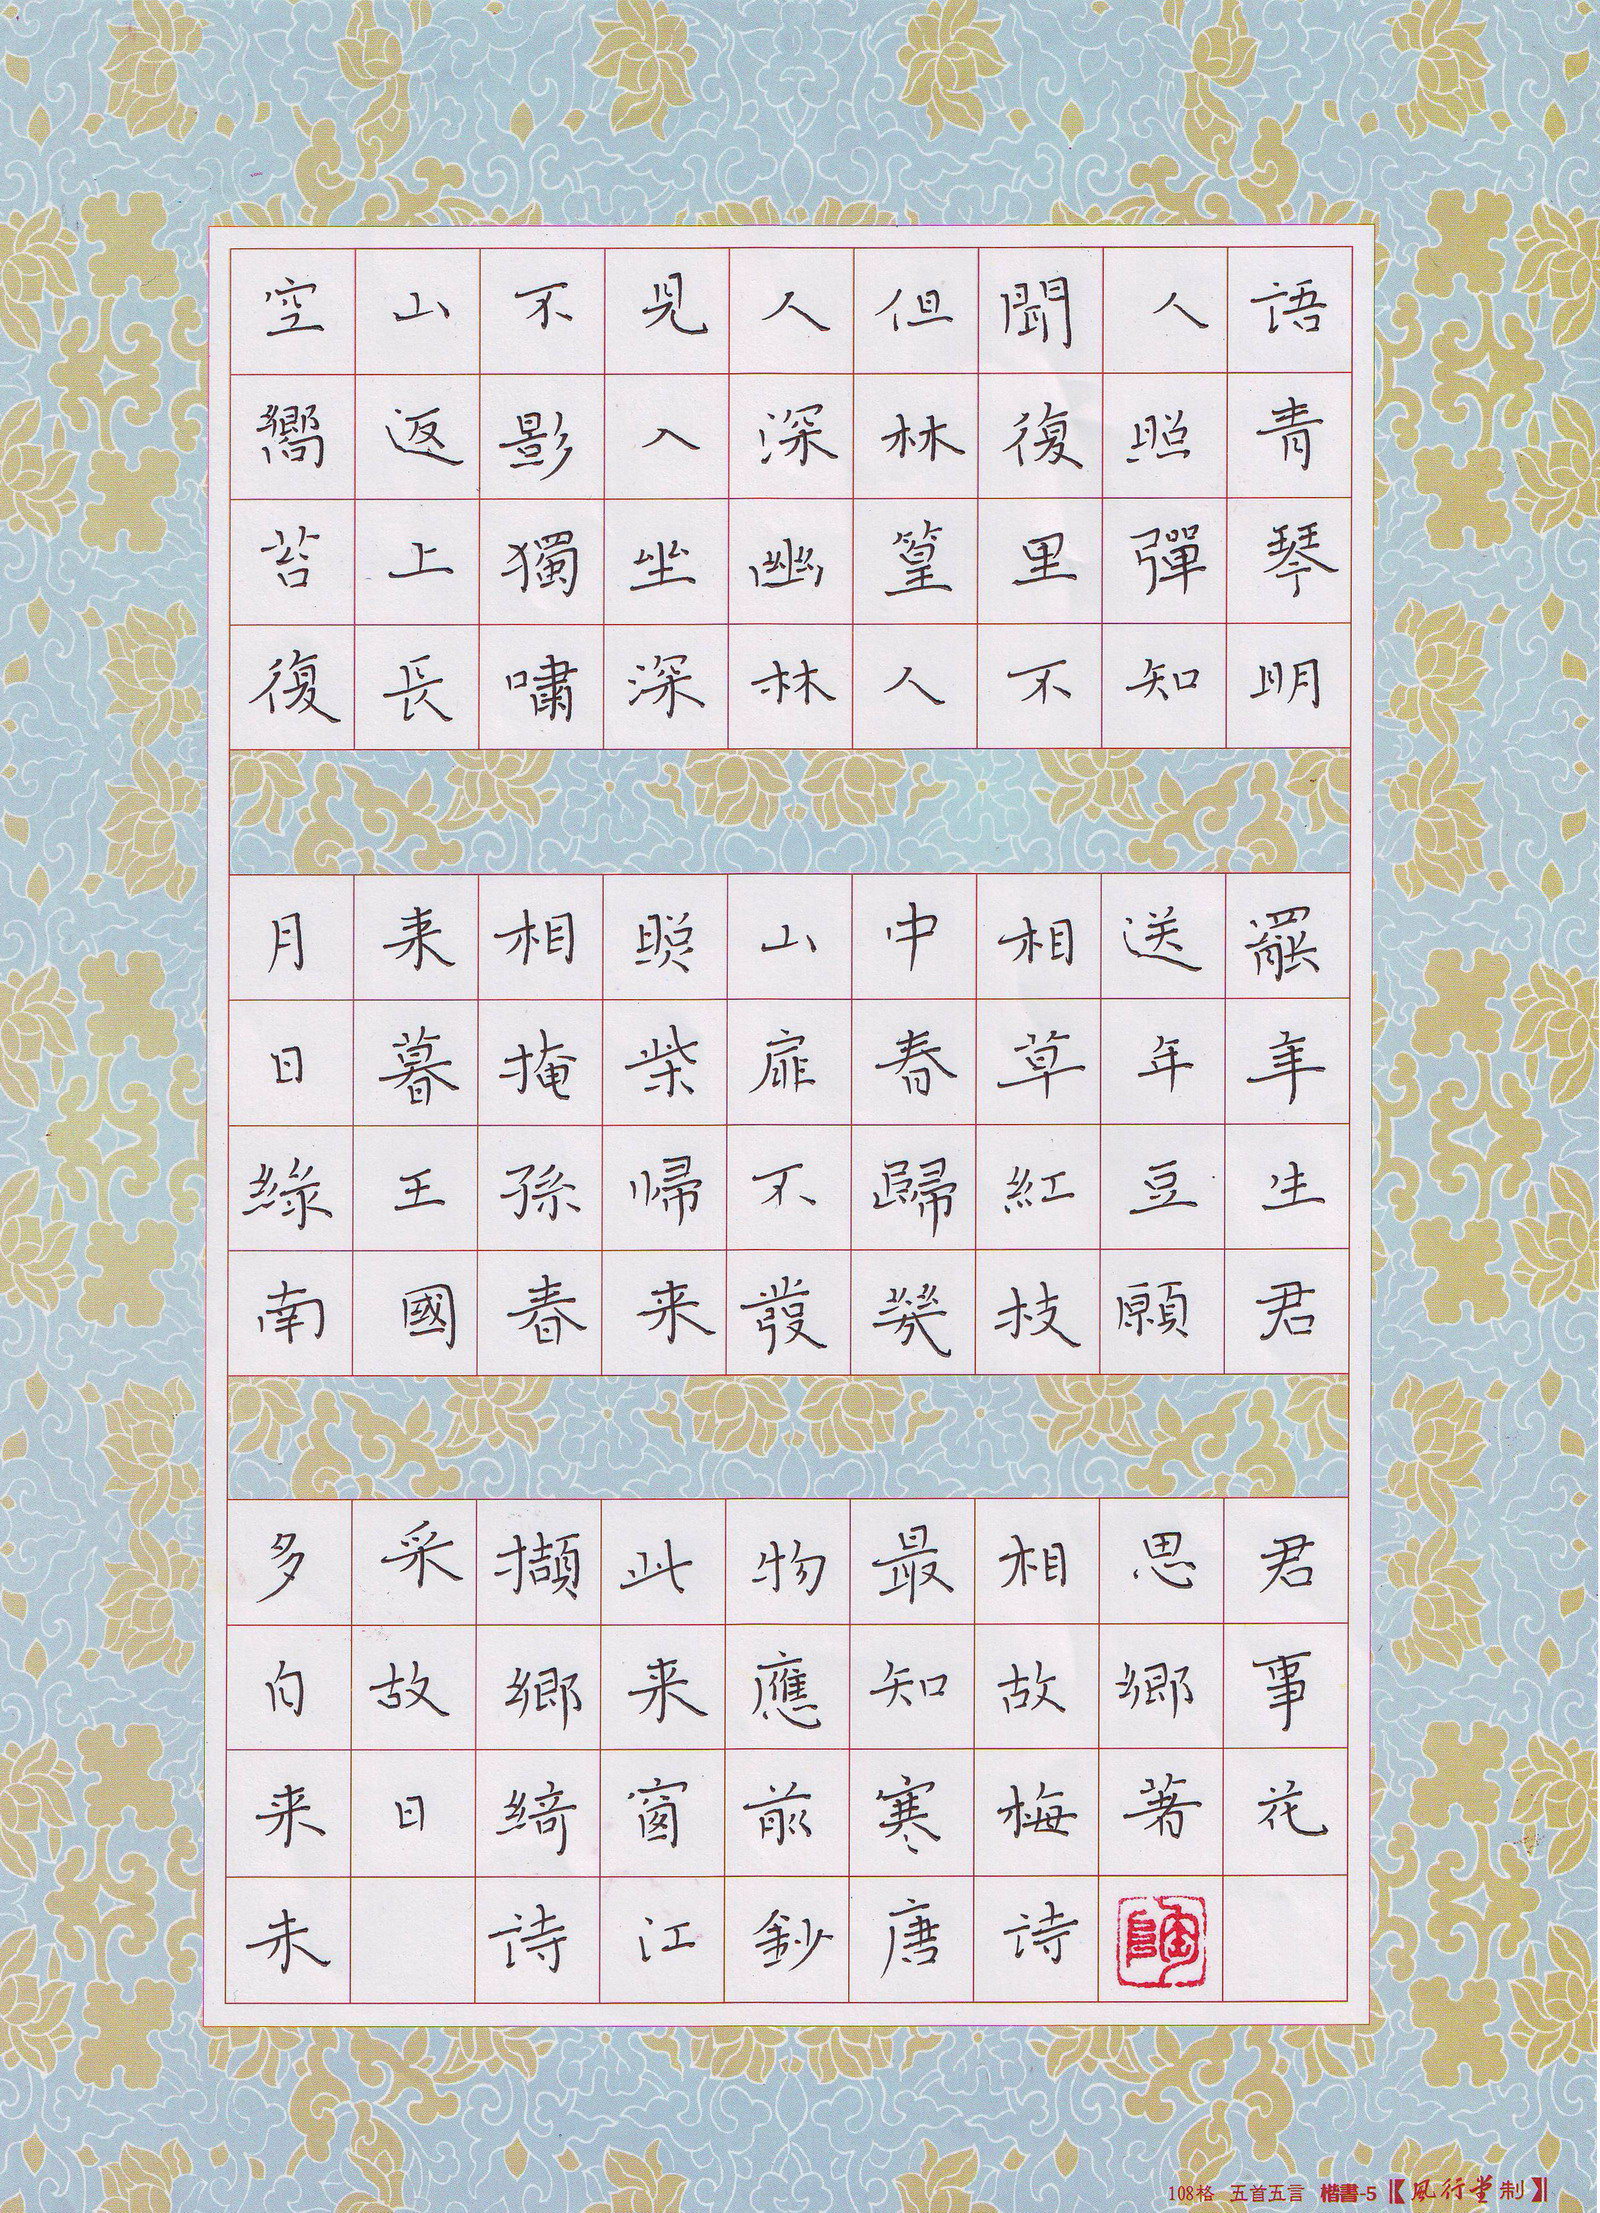 空山不見人但聞人語
嚮返影入深林復照青
苔上獨坐幽篁里彈琴
復長嘯深林人不知明
月来相照山中相送罷
日暮掩柴扉春草年年
綠王孫帰不歸紅豆生
南國春来發幾枝願君
多采擷此物最相思君
自故鄉来應知故鄉事
来日綺窗前寒梅著花
未 詩江鈔唐詩
108格 五首五言 楷書-5【風行堂制】